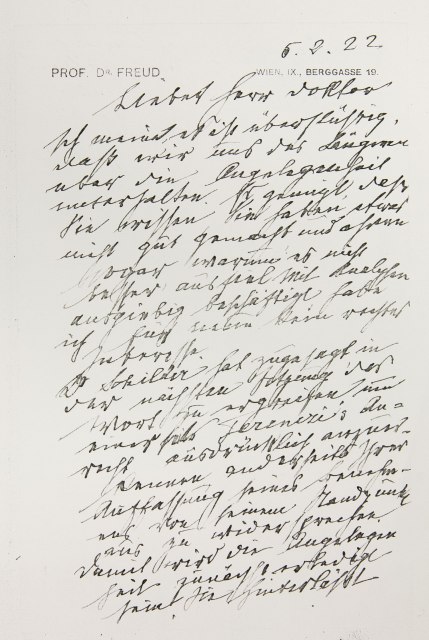 6. 2. 22
PROF. DR. FREUD
WIEN, IX., BERGGASSE 19.
Lieber Herr Doktor
Ich meine es ist überflüssig,
daß wir uns des Längeren
über die Angelegenheit
unterhalten. Es genügt, daß
Sie wissen Sie haben etwas
nicht gut gemacht und ahnen
sogar warum es nicht
besser ausfiel. Mit Analysen
ausgiebig beschäftigt habe
ich für kein rechtes
Interesse.
Dr Schilder hat zugesagt in
der nächsten Sitzung das
Wort zu ergreifen um
einerseits Ferenczi's An-
recht ausdrücklich anzuer-
kennen anderseits Ihrer
Auffassung seines Benehm-
ens von seinem Standpunkt
aus zu widersprechen.
Damit wird die Angelegen
heit zunächst erledigt
sein. Sie hinterläßt